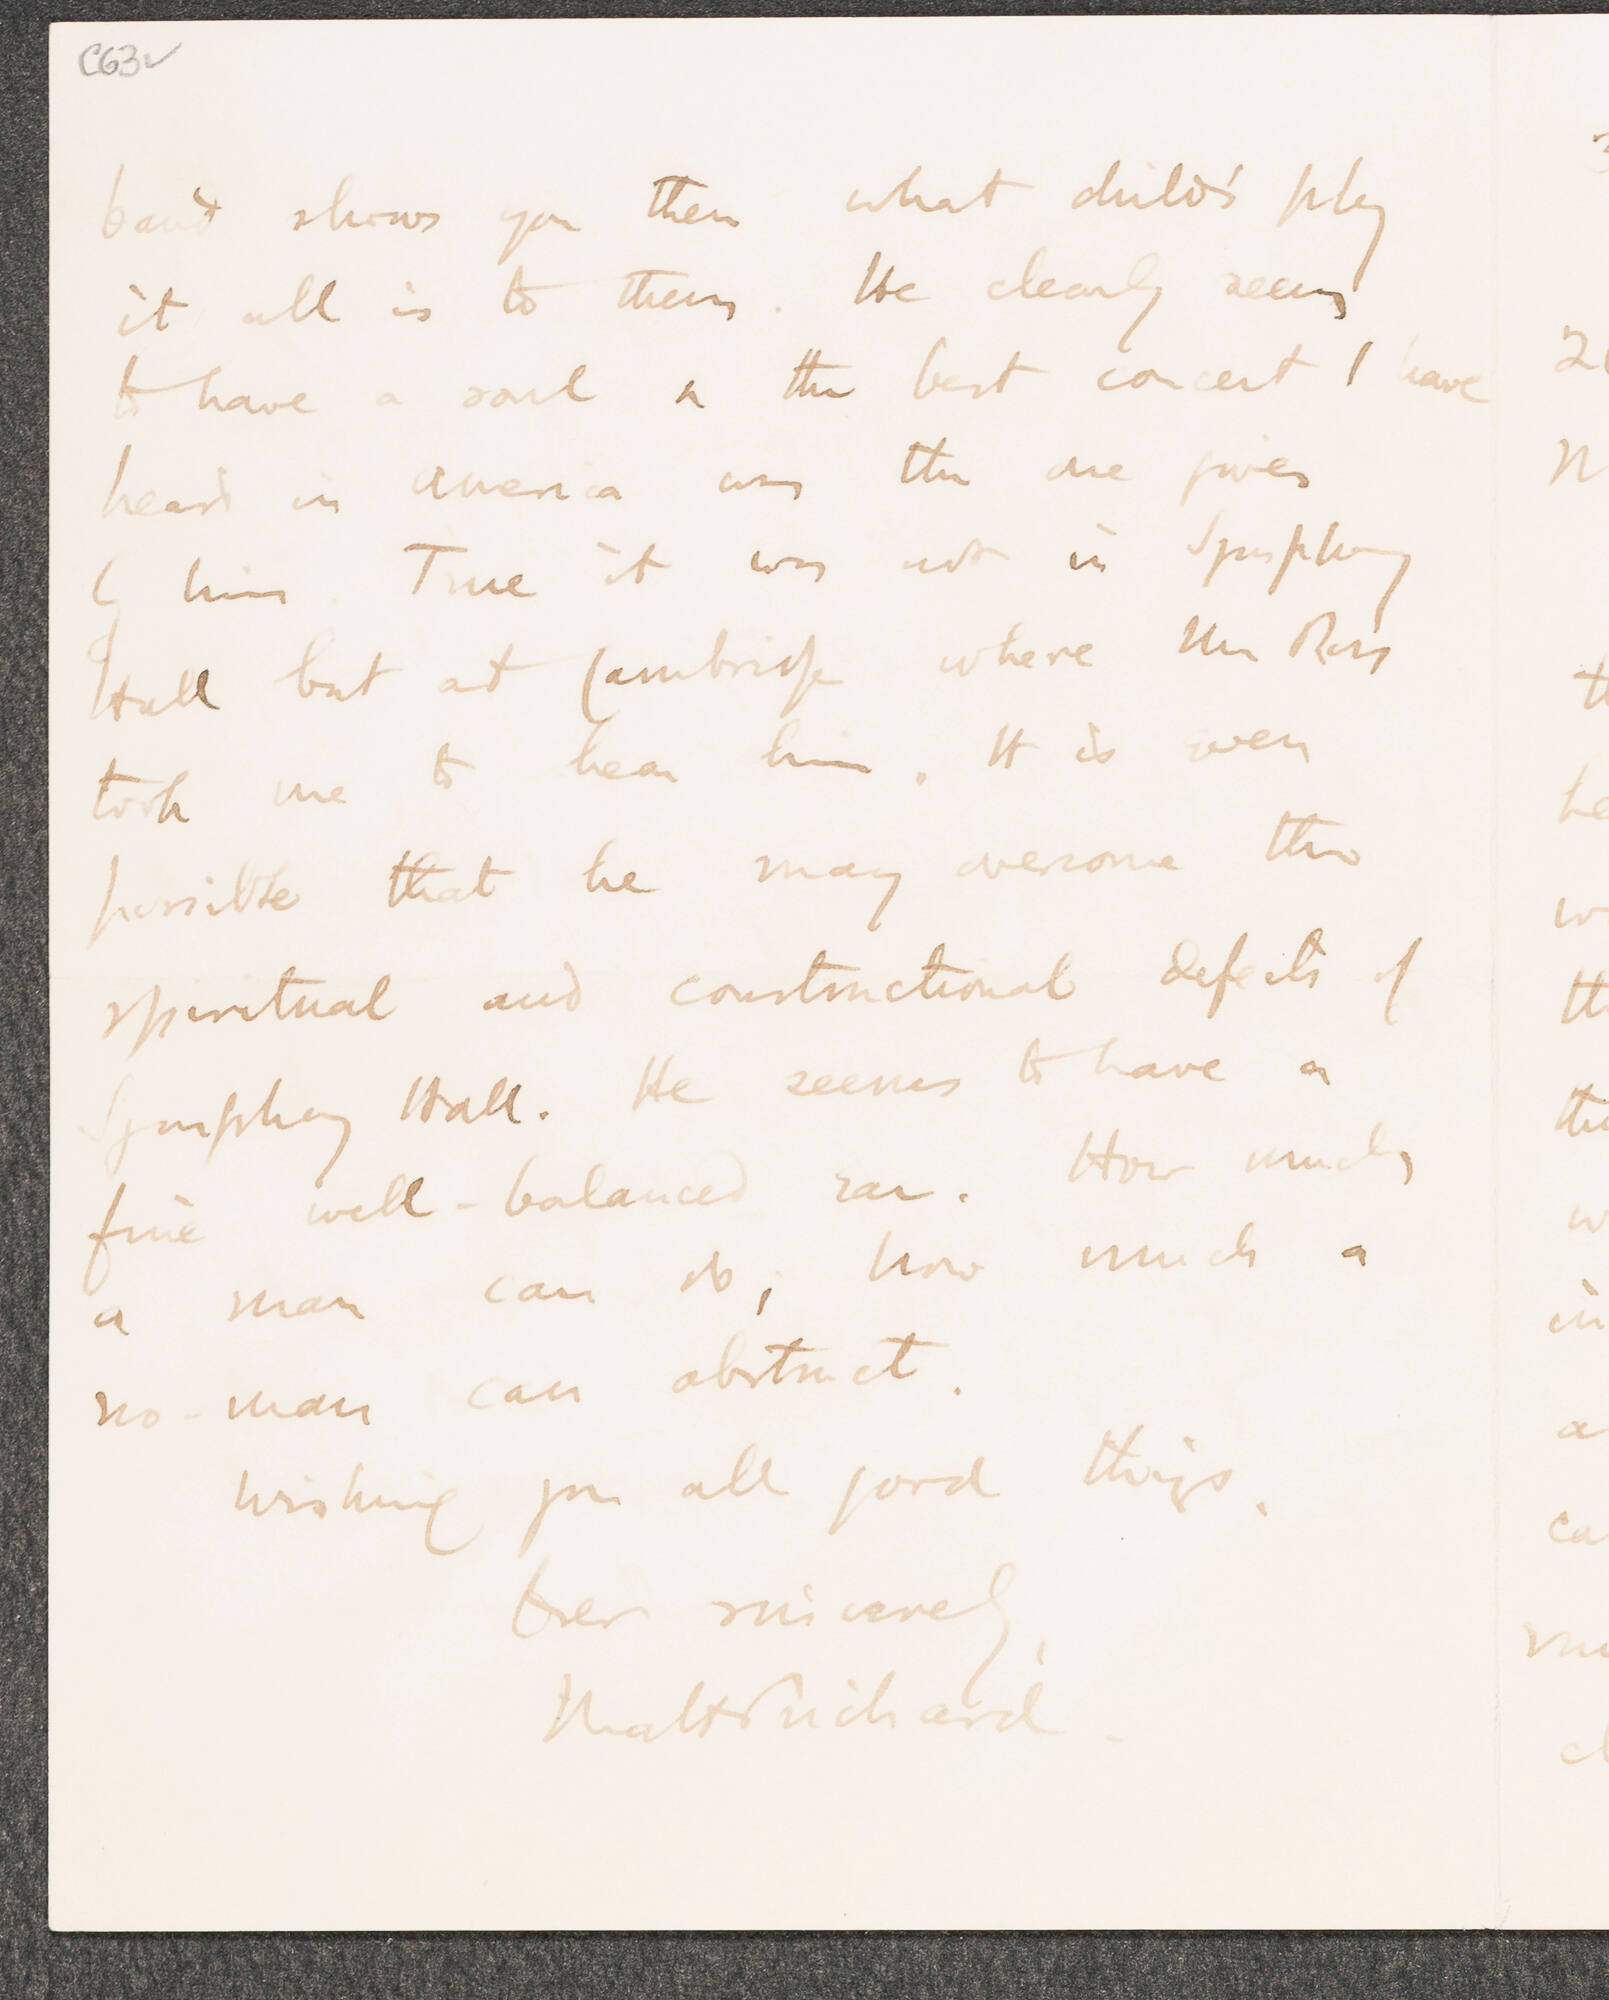 C63v
band shows you then what child's play
it all is to them. He clearly seems
to have a soul & the best concert I have
heard in America was the one given
by him. True it was not in Symphony
Hall but at Cambridge where Mr Ross
took me to hear him. It is even
possible that he may overcome the
spiritual and constructional defects of
Symphony Hall. He seems to have a
fine well-balanced ear. How much
a man can do, how much a
no-man can obstruct.
Wishing you all good things.
Ever sincerely,
Matt Prichard.